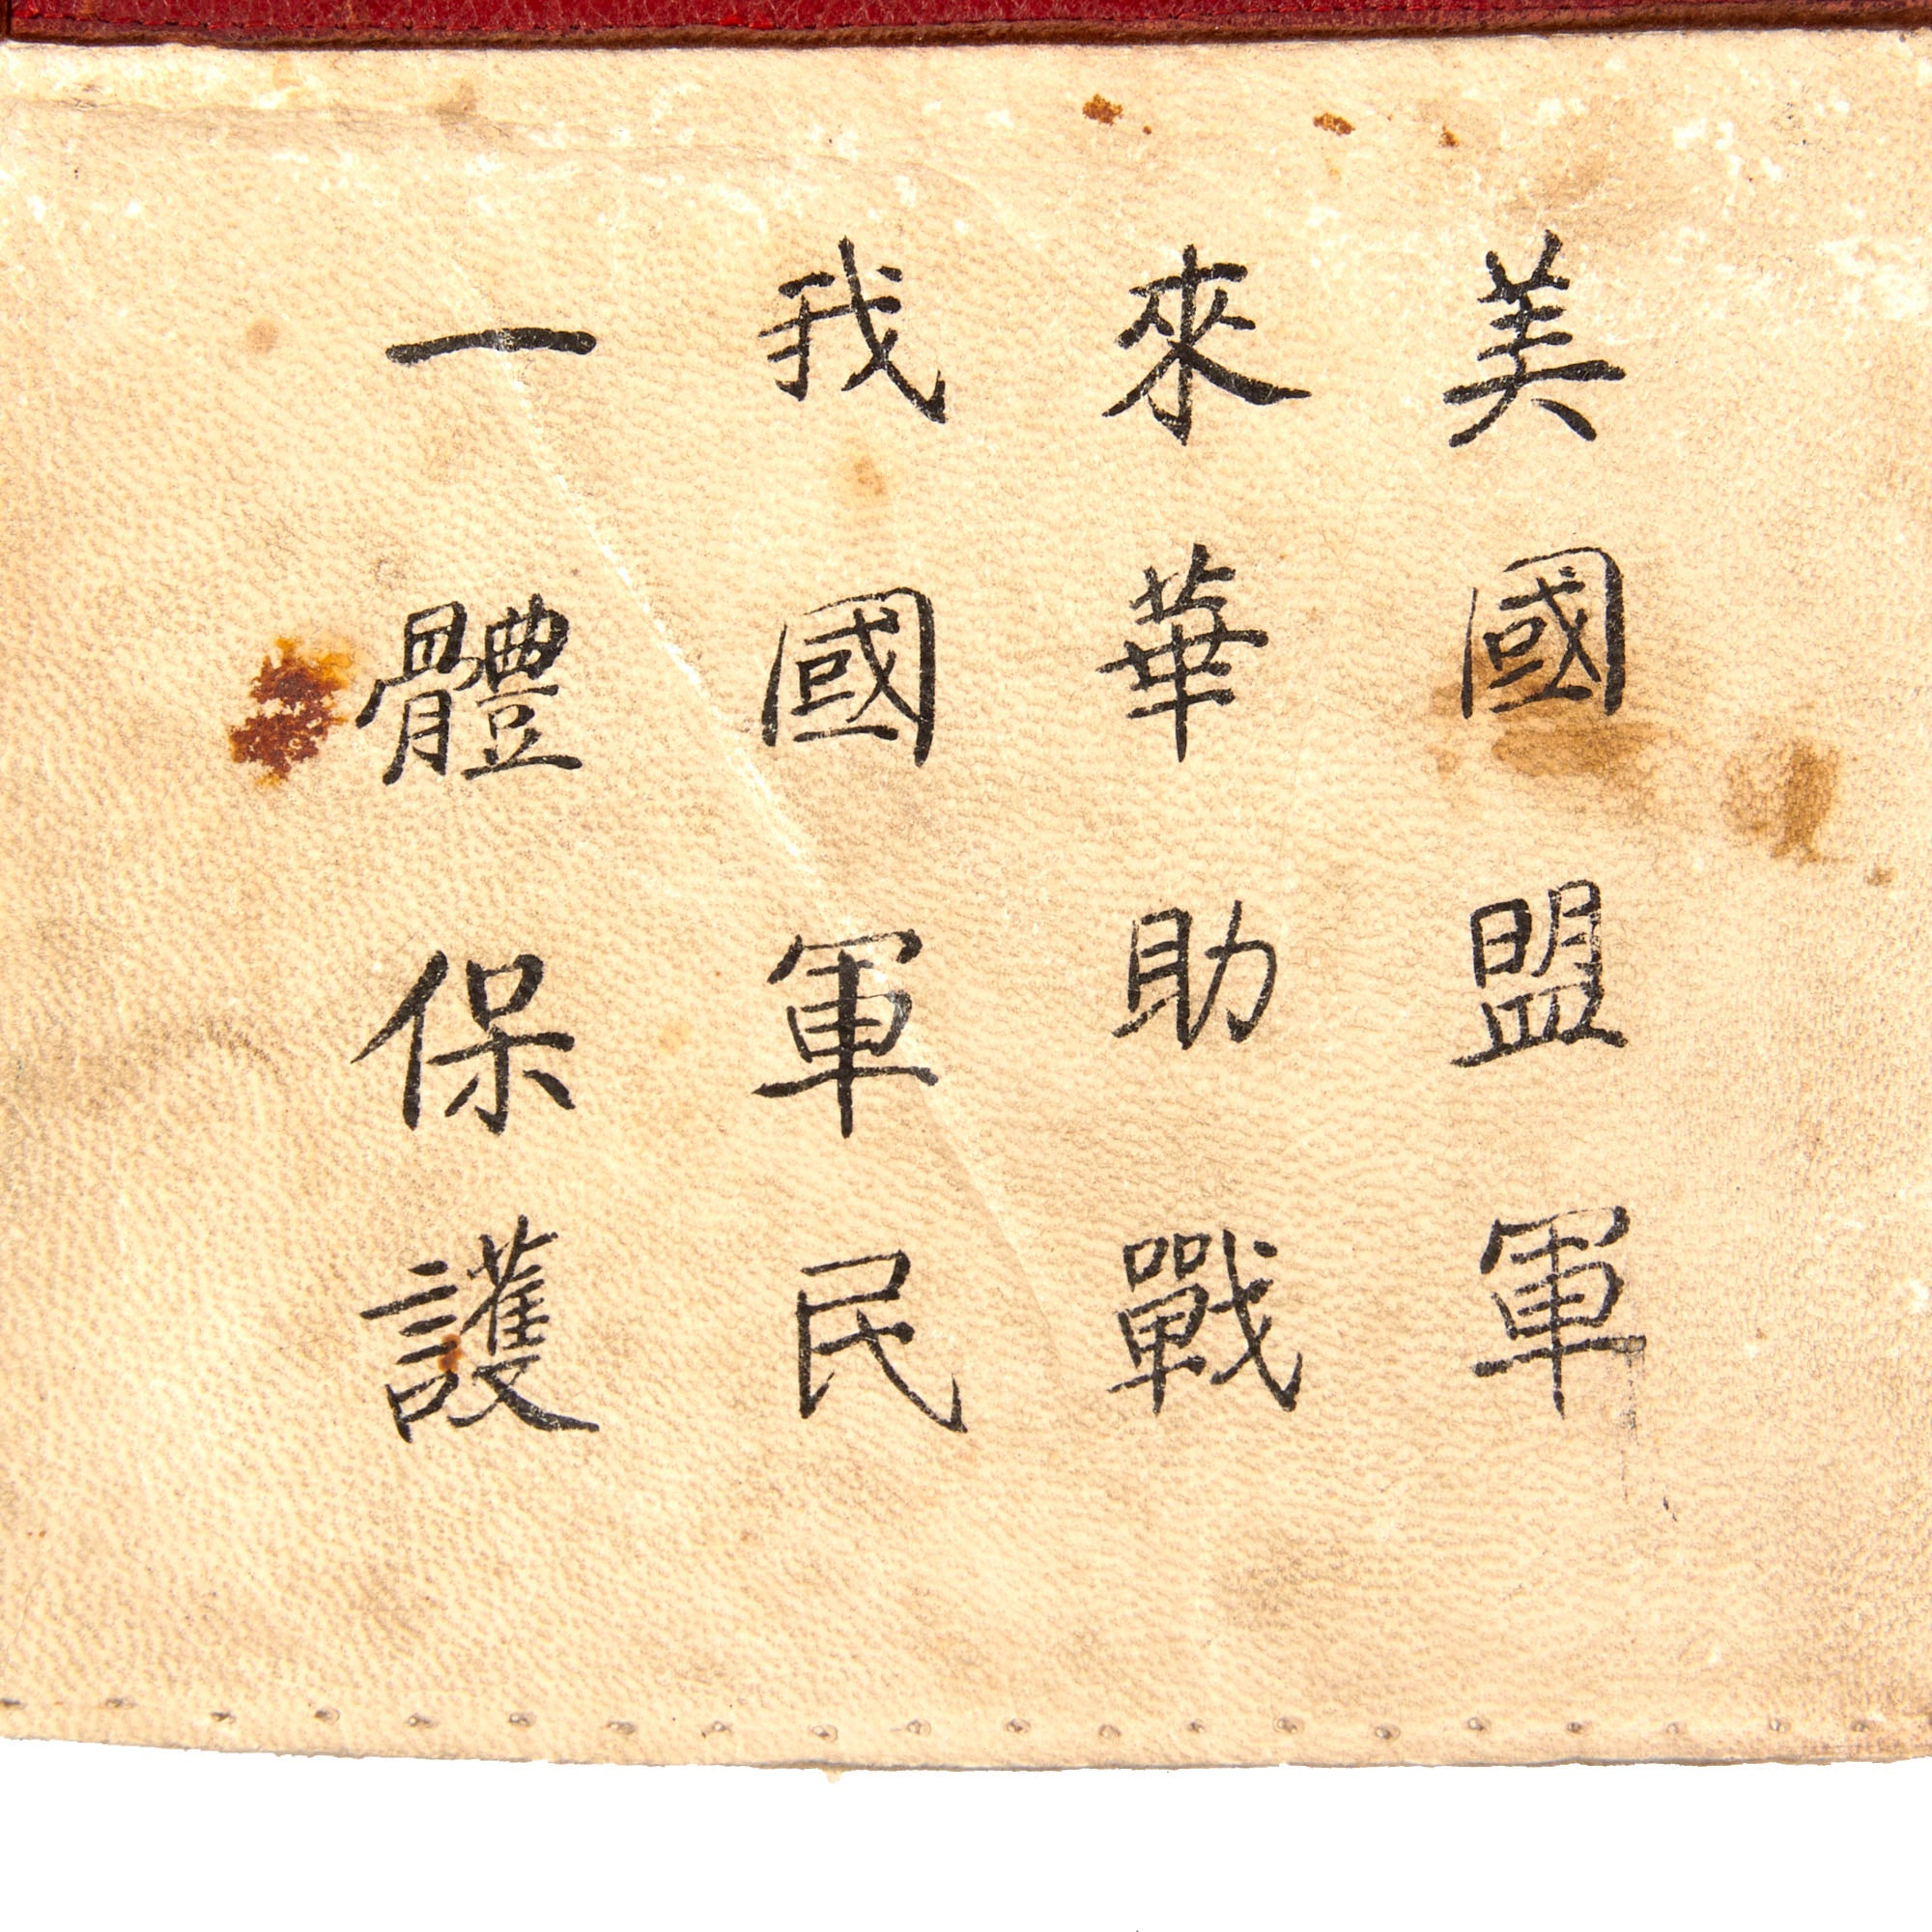 美國盟軍
來華助戰
我國軍民
一體保護